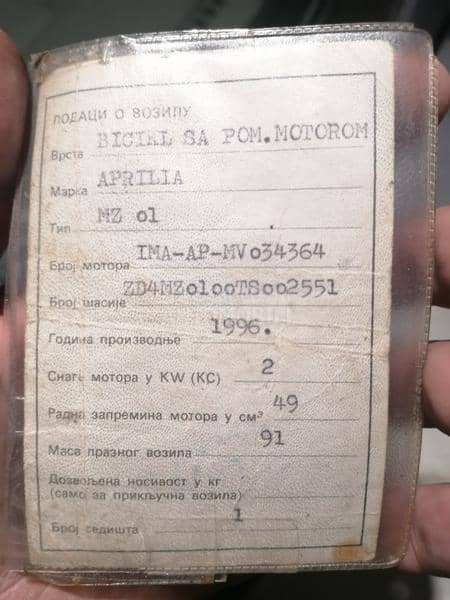 ПОДАЦИ О ВОЗИЛУ
Врста BICIKL SA POM.MOTOROM
Марка APRILIA
Тип MZ o1
Број мотора IMA-AP-MVo34364
Број шасије ZD4MZo1ooTSoo2551
Година производње 1996.
Снага мотора у KW (КС) 2
Радна запремина мотора у см³ 49
Маса празног возила 91
Дозвољена носивост у кг
(само за прикључна возила)
Број седишта 1